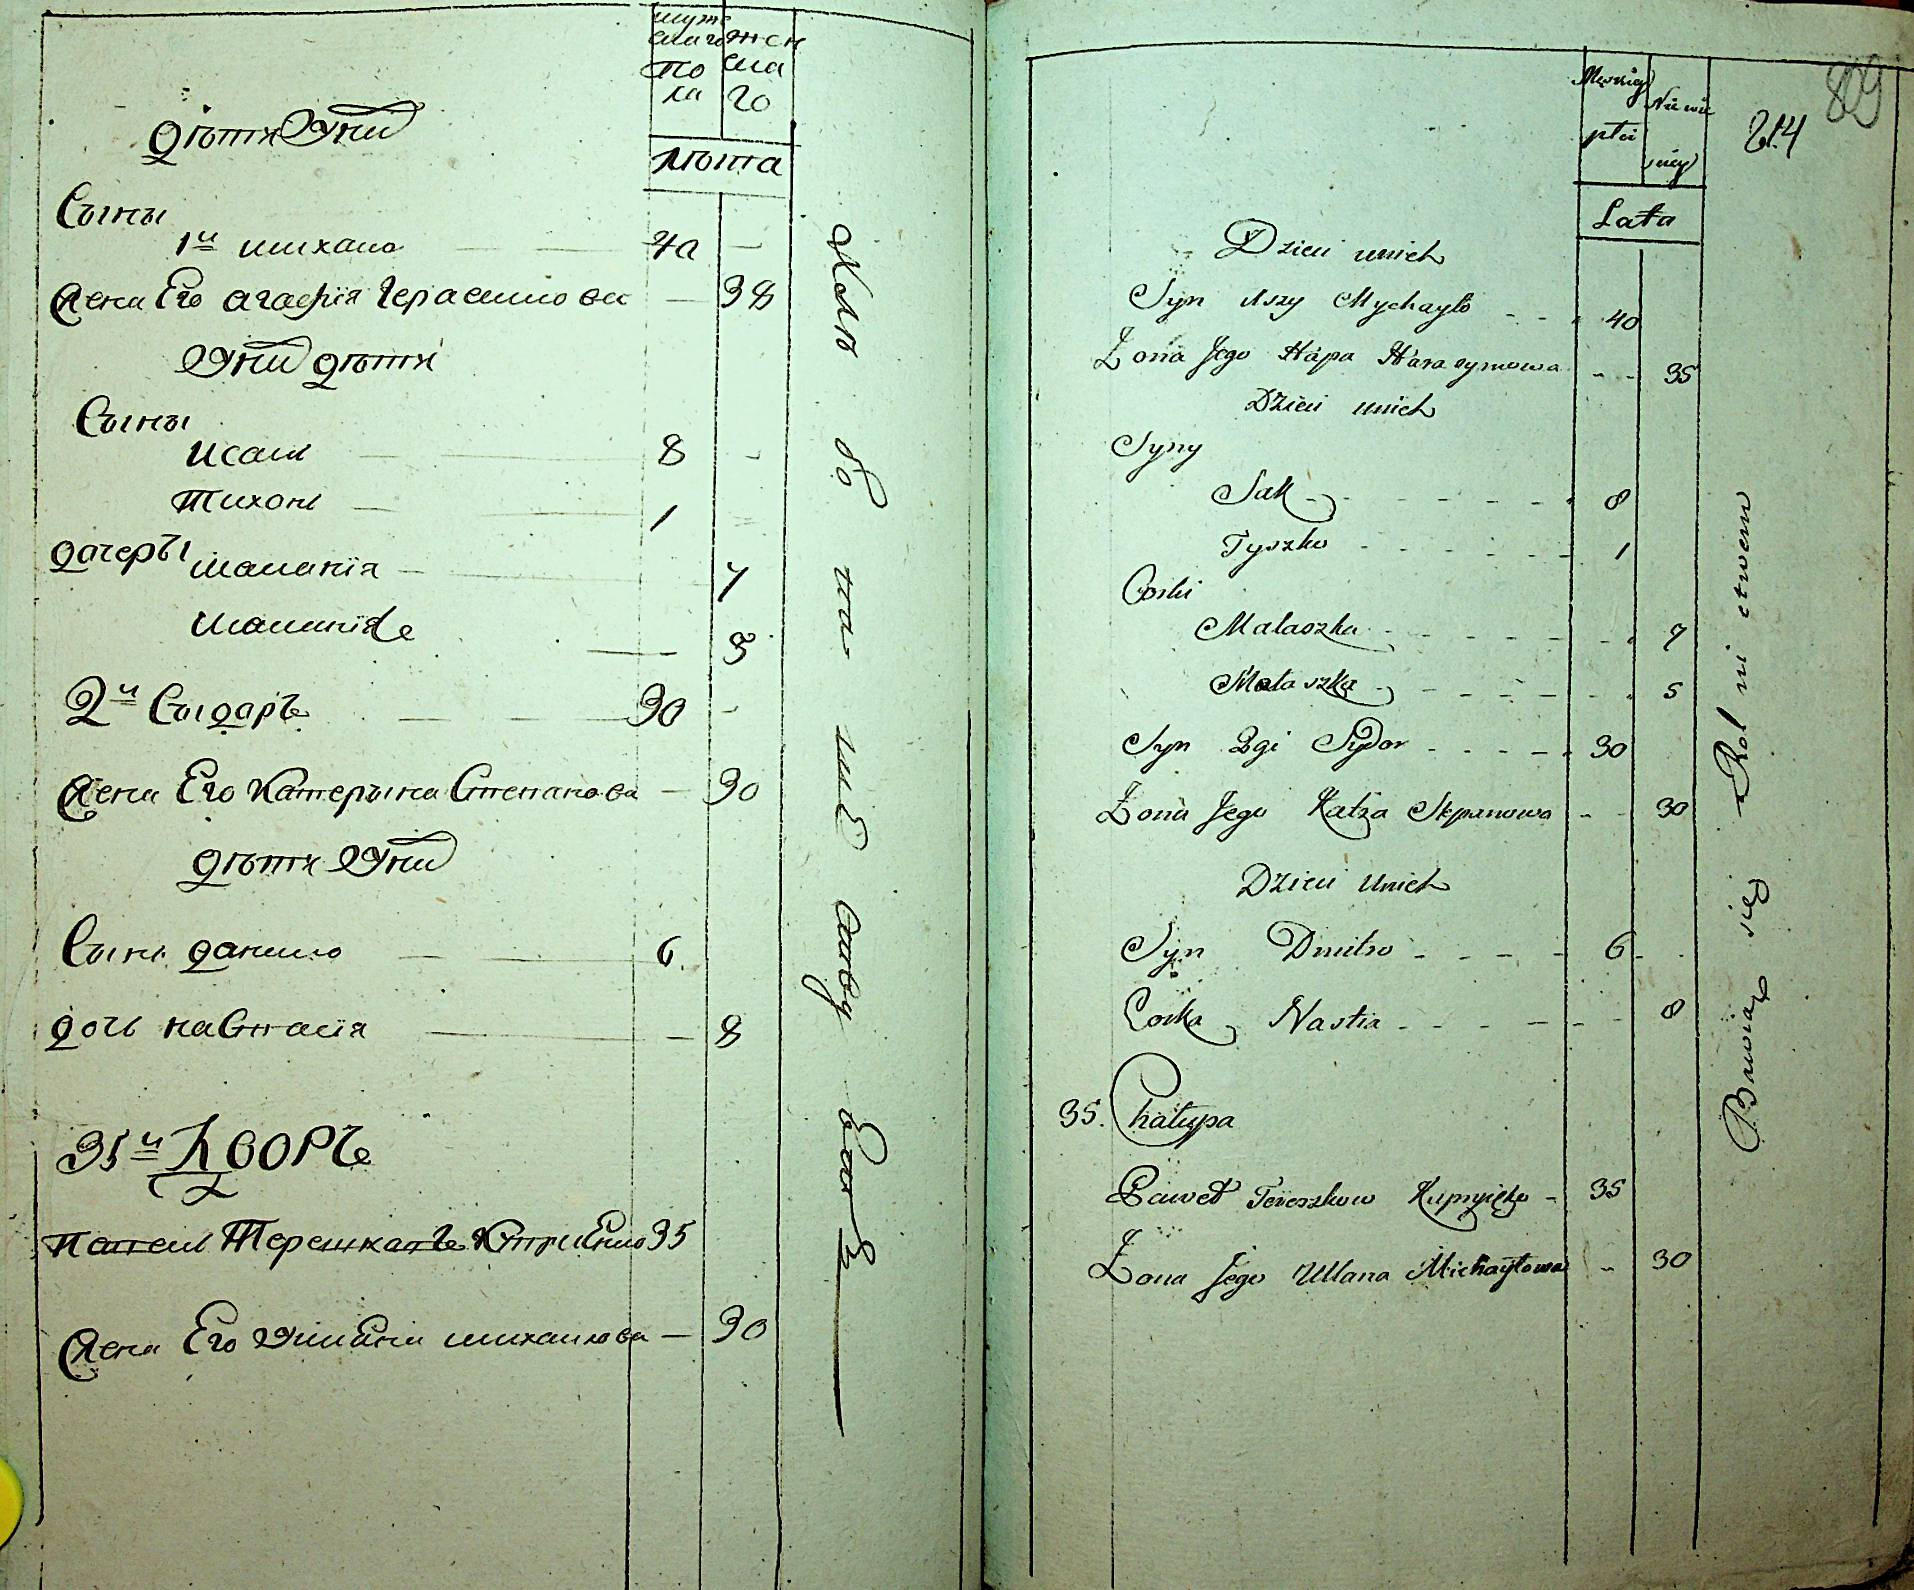 муже
скаго
пола
женскаго
лѣта
дѣти Уни
Сыны
1й михаило 40 —
жена Его агафiя Герасимова — 38
Уни дѣти
Сыны
Исаiи 8 -
Тихонъ 1
дочеры маланiя — 7
маланiя — 5
2й Сыдаръ — 30 -
жена Его Катерына Степанова — 30
дѣти Уни
Сынъ данило — 6.
дочь наСтасiя — 8
35й ДВОРЪ
павелъ Терешкавъ 35
жена Его михаилова — 30
Męzkiey płci
Niewiesciey
Lata
214
809
Dzieci u nich
Syn 1szy Mychayło - - - 40
Zona Jego Hapa Harasymowa - - 35
Dzieci u nich
Syny
Sak - - - - - - 8
Tyszko - - - - - - 1
Corki
Małaszka - - - - - - 7
Małaszka - - - - - - 5
Syn 2gi Sydor - - - - 30
Zona Jego Katza Stepanowa - - 30
Dzieci u nich
Syn Dmitro - - - - 6 - -
Corka Nastia - - - - - - 8
35. Chałupa
Paweł Tereszkow - 35
Zona Jego Ullana Michayłowa - 30
Bawią się Rolnictwem